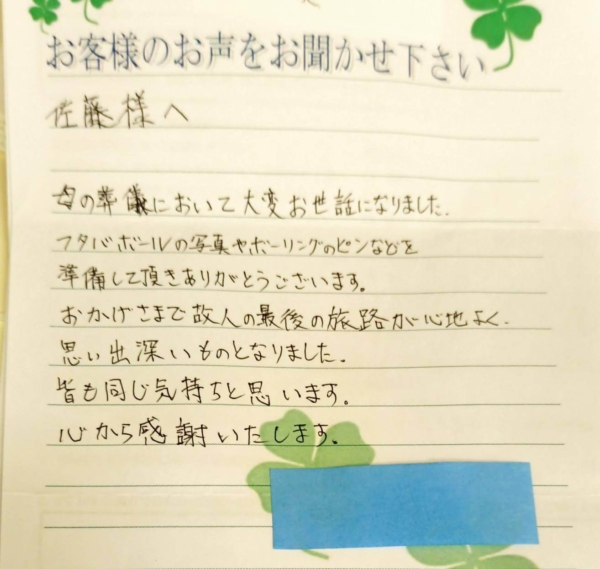 お客様のお声をお聞かせ下さい
佐藤様へ
母の葬儀において大変お世話になりました.
フタバボールの写真やボーリングのピンなどを
準備して頂きありがとうございます。
おかげさまで故人の最後の旅路が心地よく、
思い出深いものとなりました.
皆も同じ気持ちと思います。
心から感謝いたします。